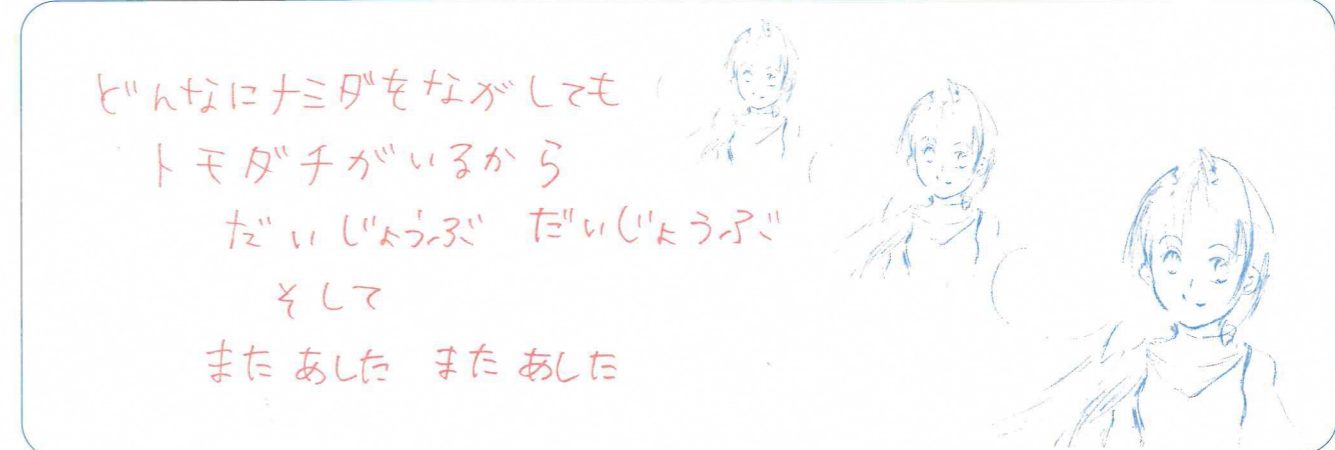 どんなにナミダをながしても
トモダチがいるから
だいじょうぶ だいじょうぶ
そして
また あした また あした